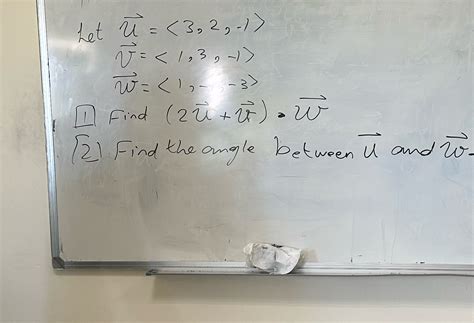 Let u = <3, 2, -1>
v = <1, 3, -1>
w = <1, -3>
[1] Find (2u + v) • w
[2] Find the angle between u and w